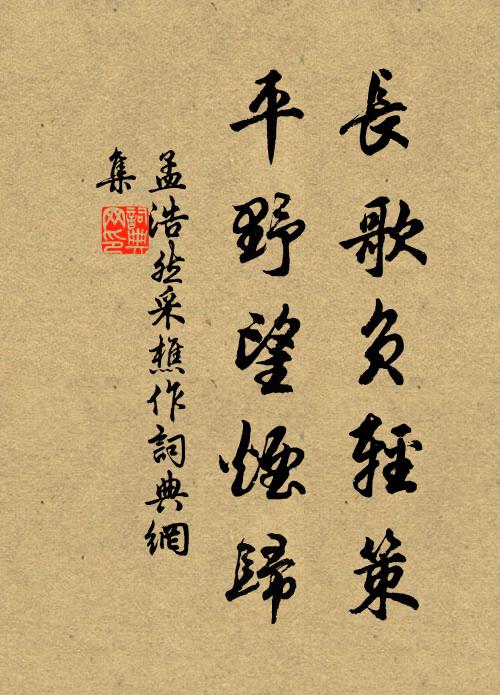 長歌負輕策
平野望煙歸
孟浩然采樵作詞典網
集
詞典網印